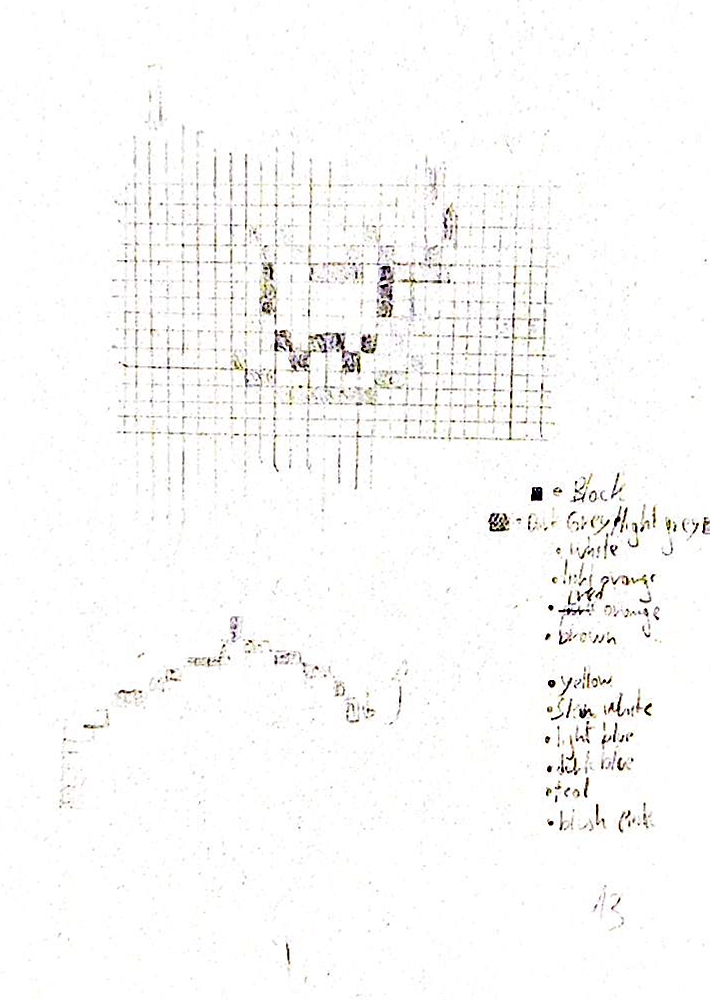 = Black
= Dark Grey/light grey
• white
• light orange
red
• orange
• brown
• yellow
• Skin white
• light blue
• dark blue
• teal
• blush pink